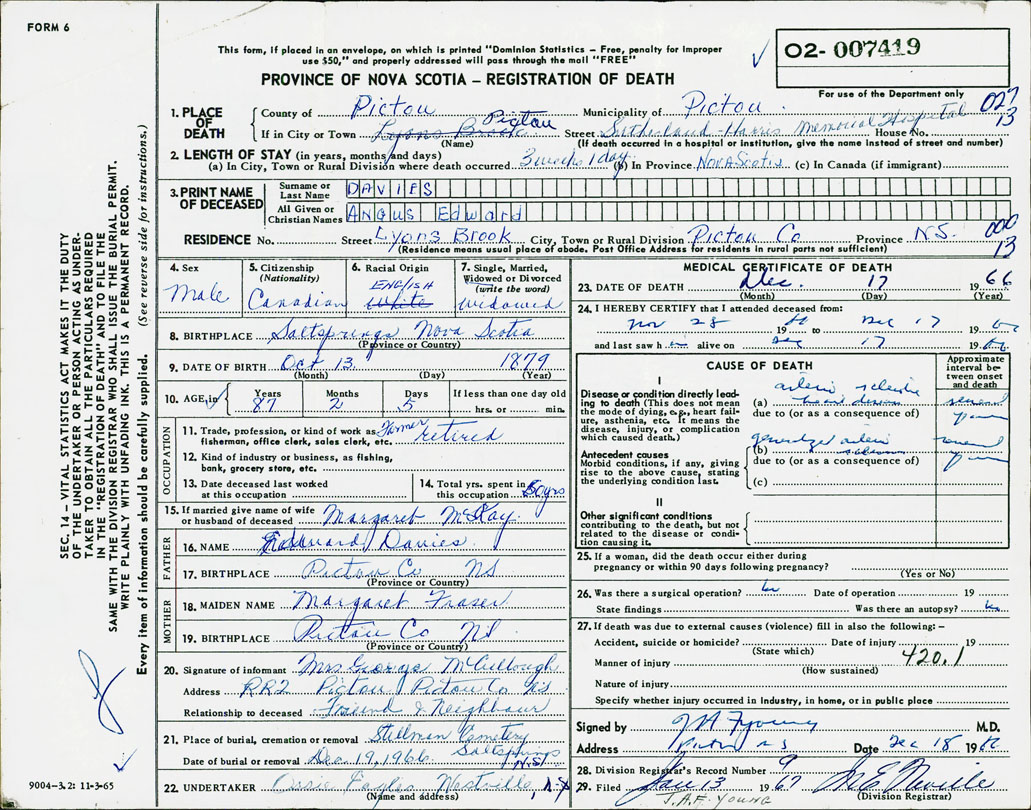 FORM 6
This form, if placed in an envelope, on which is printed "Dominion Statistics – Free, penalty for improper
use $50," and properly addressed will pass through the mail "FREE"
PROVINCE OF NOVA SCOTIA – REGISTRATION OF DEATH
02-007419
For use of the Department only
027
13
1. PLACE OF DEATH
County of Pictou Municipality of Pictou
If in City or Town Lyons Brook Pictou Street Sutherland-Harris Memorial Hospital House No.
(Name) (If death occurred in a hospital or institution, give the name instead of street and number)
2. LENGTH OF STAY (in years, months and days)
(a) In City, Town or Rural Division where death occurred 3 weeks 1 day (b) In Province Nova Scotia (c) In Canada (if immigrant)
3. PRINT NAME OF DECEASED
Surname or Last Name DAVIES
All Given or Christian Names Angus Edward
RESIDENCE No. Street Lyons Brook City, Town or Rural Division Pictou Co Province N.S.
(Residence means usual place of abode. Post Office Address for residents in rural parts not sufficient)
000
13
4. Sex
Male
5. Citizenship
(Nationality)
Canadian
6. Racial Origin
ENGLISH
White
7. Single, Married,
Widowed or Divorced
(write the word)
widowed
8. BIRTHPLACE Saltsprings Nova Scotia
(Province or Country)
9. DATE OF BIRTH Oct 13 1879
(Month) (Day) (Year)
10. AGE in Years 87 Months 2 Days 5 If less than one day old
hrs. or min.
OCCUPATION
11. Trade, profession, or kind of work as Farmer retired
fisherman, office clerk, sales clerk, etc.
12. Kind of industry or business, as fishing,
bank, grocery store, etc.
13. Date deceased last worked
at this occupation
14. Total yrs. spent in
this occupation 50 yrs
15. If married give name of wife
or husband of deceased Margaret McKay
FATHER
16. NAME Edward Davies
17. BIRTHPLACE Pictou Co NS
(Province or Country)
MOTHER
18. MAIDEN NAME Margaret Fraser
19. BIRTHPLACE Pictou Co NS
(Province or Country)
20. Signature of informant Mrs George McCullough
Address RR2 Pictou Pictou Co NS
Relationship to deceased Friend & Neighbour
21. Place of burial, cremation or removal Stillman Cemetery
Saltsprings N.S.
Date of burial or removal Dec 19, 1966
22. UNDERTAKER Westville, N.S.
(Name and address)
MEDICAL CERTIFICATE OF DEATH
23. DATE OF DEATH Dec. 17 1966
(Month) (Day) (Year)
24. I HEREBY CERTIFY that I attended deceased from:
Nov 25 19 to Dec 17 19
and last saw h alive on Dec 17 19
CAUSE OF DEATH
Approximate
interval be-
tween onset
and death
I
Disease or condition directly lead-
ing to death (This does not mean
the mode of dying, e.g., heart fail-
ure, asthenia, etc. It means the
disease, injury, or complication
which caused death.)
(a) several years
due to (or as a consequence of)
Antecedent causes
Morbid conditions, if any, giving
rise to the above cause, stating
the underlying condition last.
(b) generalized several years
due to (or as a consequence of)
(c)
II
Other significant conditions
contributing to the death, but not
related to the disease or condi-
tion causing it.
25. If a woman, did the death occur either during
pregnancy or within 90 days following pregnancy?
(Yes or No)
26. Was there a surgical operation? Date of operation 19
State findings Was there an autopsy?
27. If death was due to external causes (violence) fill in also the following: –
Accident, suicide or homicide? Date of injury 19
(State which)
Manner of injury 420.1
(How sustained)
Nature of injury
Specify whether injury occurred in Industry, in home, or in public place
Signed by J A F Young M.D.
Address Pictou N S Date Dec 18 19
28. Division Registrar's Record Number 9
29. Filed Jan 13 1967 M E Neville
J.A.F. YOUNG (Division Registrar)
SEC. 14 – VITAL STATISTICS ACT MAKES IT THE DUTY
OF THE UNDERTAKER OR PERSON ACTING AS UNDER-
TAKER TO OBTAIN ALL THE PARTICULARS REQUIRED
IN THE "REGISTRATION OF DEATH" AND TO FILE THE
SAME WITH THE DIVISION REGISTRAR WHO SHALL ISSUE THE BURIAL PERMIT.
WRITE PLAINLY WITH UNFADING INK. THIS IS A PERMANENT RECORD.
Every item of information should be carefully supplied. (See reverse side for instructions.)
9004-3.2: 11-3-65